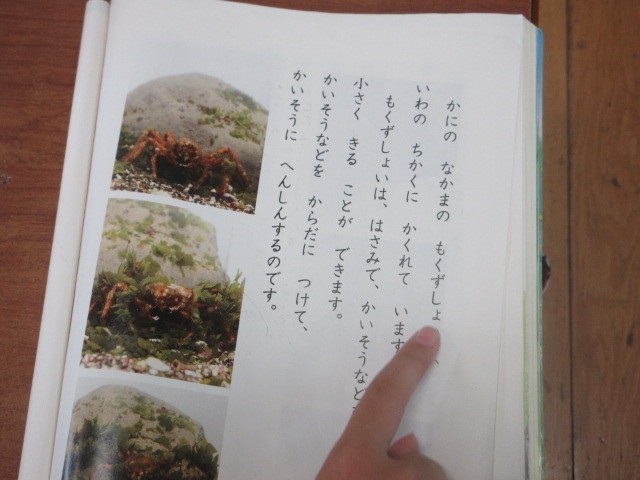 かにの なかまの もくずしょ、
いわの ちかくに かくれて います
もくずしょいは、はさみで、かいそうなど
小さく きる ことが できます。
かいそうなどを からだに つけて、
かいそうに へんしんするのです。